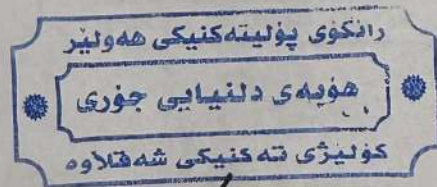 زانكۆی پۆلیتەكنیكی هەولێر
هۆبەی دڵنیایی جۆری
كۆلیژی تەكنیكی شەقڵاوە